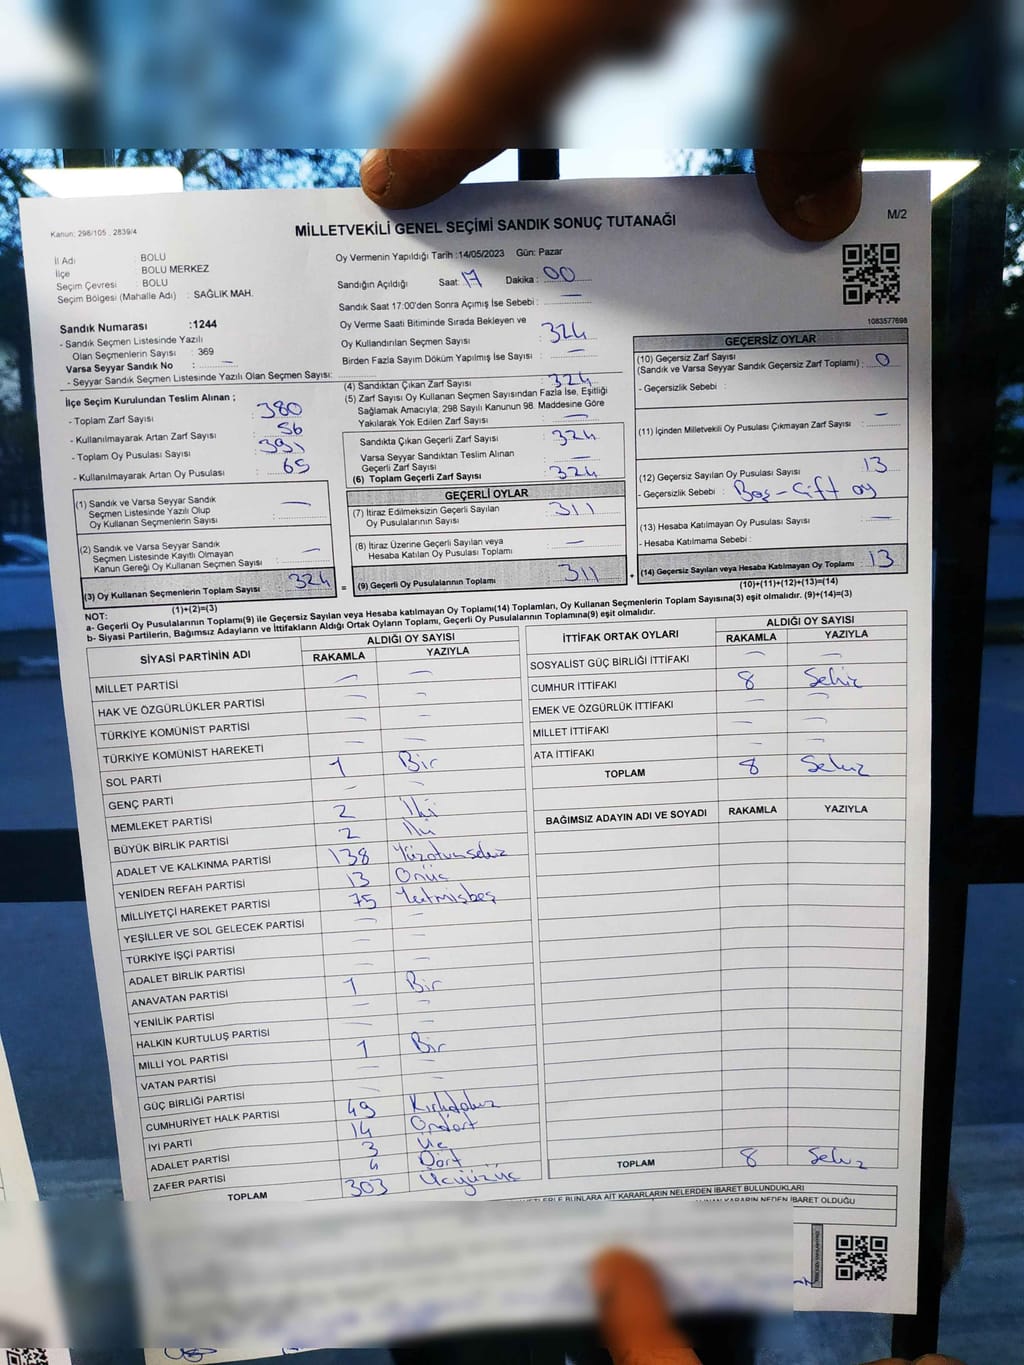 Kanun: 298/105 , 2839/4
MİLLETVEKİLİ GENEL SEÇİMİ SANDIK SONUÇ TUTANAĞI
M/2
İl Adı : BOLU
İlçe BOLU MERKEZ
Seçim Çevresi : BOLU
Seçim Bölgesi (Mahalle Adı) : SAĞLIK MAH.
Oy Vermenin Yapıldığı Tarih :14/05/2023 Gün: Pazar
Sandığın Açıldığı Saat: 17 Dakika : 00
Sandık Saat 17:00'den Sonra Açımış İse Sebebi : —
Oy Verme Saati Bitiminde Sırada Bekleyen ve
Oy Kullandırılan Seçmen Sayısı : 324
Birden Fazla Sayım Döküm Yapılmış İse Sayısı : —
1083577698
Sandık Numarası :1244
- Sandık Seçmen Listesinde Yazılı
Olan Seçmenlerin Sayısı : 369
Varsa Seyyar Sandık No : —
- Seyyar Sandık Seçmen Listesinde Yazılı Olan Seçmen Sayısı:
İlçe Seçim Kurulundan Teslim Alınan ;
- Toplam Zarf Sayısı : 380
- Kullanılmayarak Artan Zarf Sayısı : 56
- Toplam Oy Pusulası Sayısı : 391
- Kullanılmayarak Artan Oy Pusulası : 65
(1) Sandık ve Varsa Seyyar Sandık
Seçmen Listesinde Yazılı Olup
Oy Kullanan Seçmenlerin Sayısı : —
(2) Sandık ve Varsa Seyyar Sandık
Seçmen Listesinde Kayıtlı Olmayan
Kanun Gereği Oy Kullanan Seçmen Sayısı : —
(3) Oy Kullanan Seçmenlerin Toplam Sayısı 324
(1)+(2)=(3)
(4) Sandıktan Çıkan Zarf Sayısı : 324
(5) Zarf Sayısı Oy Kullanan Seçmen Sayısından Fazla İse, Eşitliği
Sağlamak Amacıyla, 298 Sayılı Kanunun 98. Maddesine Göre
Yakılarak Yok Edilen Zarf Sayısı : —
Sandıkta Çıkan Geçerli Zarf Sayısı : 324
Varsa Seyyar Sandıktan Teslim Alınan
Geçerli Zarf Sayısı : —
(6) Toplam Geçerli Zarf Sayısı : 324
GEÇERLİ OYLAR
(7) İtiraz Edilmeksizin Geçerli Sayılan
Oy Pusulalarının Sayısı : 311
(8) İtiraz Üzerine Geçerli Sayılan veya
Hesaba Katılan Oy Pusulası Toplamı : —
= (9) Geçerli Oy Pusulalarının Toplamı : 311
GEÇERSİZ OYLAR
(10) Geçersiz Zarf Sayısı
(Sandık ve Varsa Seyyar Sandık Geçersiz Zarf Toplamı) : 0
- Geçersizlik Sebebi :
(11) İçinden Milletvekili Oy Pusulası Çıkmayan Zarf Sayısı : —
(12) Geçersiz Sayılan Oy Pusulası Sayısı : 13
- Geçersizlik Sebebi : Boş - Çift oy
(13) Hesaba Katılmayan Oy Pusulası Sayısı : —
- Hesaba Katılmama Sebebi :
+ (14) Geçersiz Sayılan veya Hesaba Katılmayan Oy Toplamı : 13
(10)+(11)+(12)+(13)=(14)
NOT:
a- Geçerli Oy Pusulalarının Toplamı(9) ile Geçersiz Sayılan veya Hesaba katılmayan Oy Toplamı(14) Toplamları, Oy Kullanan Seçmenlerin Toplam Sayısına(3) eşit olmalıdır. (9)+(14)=(3)
b- Siyasi Partilerin, Bağımsız Adayların ve İttifakların Aldığı Ortak Oyların Toplamı, Geçerli Oy Pusulalarının Toplamına(9) eşit olmalıdır.
SİYASİ PARTİNİN ADI ALDIĞI OY SAYISI
RAKAMLA YAZIYLA
MİLLET PARTİSİ — —
HAK VE ÖZGÜRLÜKLER PARTİSİ — —
TÜRKİYE KOMÜNİST PARTİSİ — —
TÜRKİYE KOMÜNİST HAREKETİ — —
SOL PARTİ 1 Bir
GENÇ PARTİ — —
MEMLEKET PARTİSİ 2 İki
BÜYÜK BİRLİK PARTİSİ 2 İki
ADALET VE KALKINMA PARTİSİ 138 Yüzotuzsekiz
YENİDEN REFAH PARTİSİ 13 Onüç
MİLLİYETÇİ HAREKET PARTİSİ 75 Yetmişbeş
YEŞİLLER VE SOL GELECEK PARTİSİ — —
TÜRKİYE İŞÇİ PARTİSİ — —
ADALET BİRLİK PARTİSİ — —
ANAVATAN PARTİSİ 1 Bir
YENİLİK PARTİSİ — —
HALKIN KURTULUŞ PARTİSİ — —
MİLLİ YOL PARTİSİ 1 Bir
VATAN PARTİSİ — —
GÜÇ BİRLİĞİ PARTİSİ — —
CUMHURİYET HALK PARTİSİ 49 Kırkdokuz
İYİ PARTİ 14 Ondört
ADALET PARTİSİ 3 Üç
ZAFER PARTİSİ 4 Dört
TOPLAM 303 Üçyüzüç
İTTİFAK ORTAK OYLARI ALDIĞI OY SAYISI
RAKAMLA YAZIYLA
SOSYALİST GÜÇ BİRLİĞİ İTTİFAKI — —
CUMHUR İTTİFAKI 8 Sekiz
EMEK VE ÖZGÜRLÜK İTTİFAKI — —
MİLLET İTTİFAKI — —
ATA İTTİFAKI — —
TOPLAM 8 Sekiz
BAĞIMSIZ ADAYIN ADI VE SOYADI RAKAMLA YAZIYLA
TOPLAM 8 Sekiz
BUNLARA AİT KARARLARIN NELERDEN İBARET BULUNDUKLARI
KARARIN NEDEN İBARET OLDUĞU